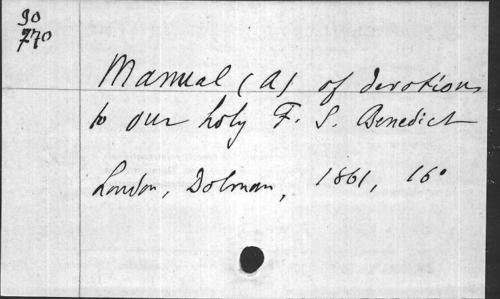 30
770
Manual (A) of devotions
to our holy F. S. Benedict
London, Dolman, 1861, 16°